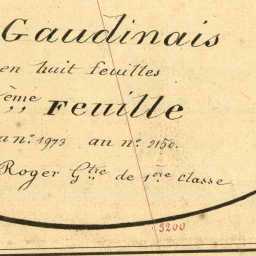 Gaudinais
en huit feuilles
ème Feuille
u n° 1973 au n° 2150.
Roger Gtre de 1ère Classe
5200